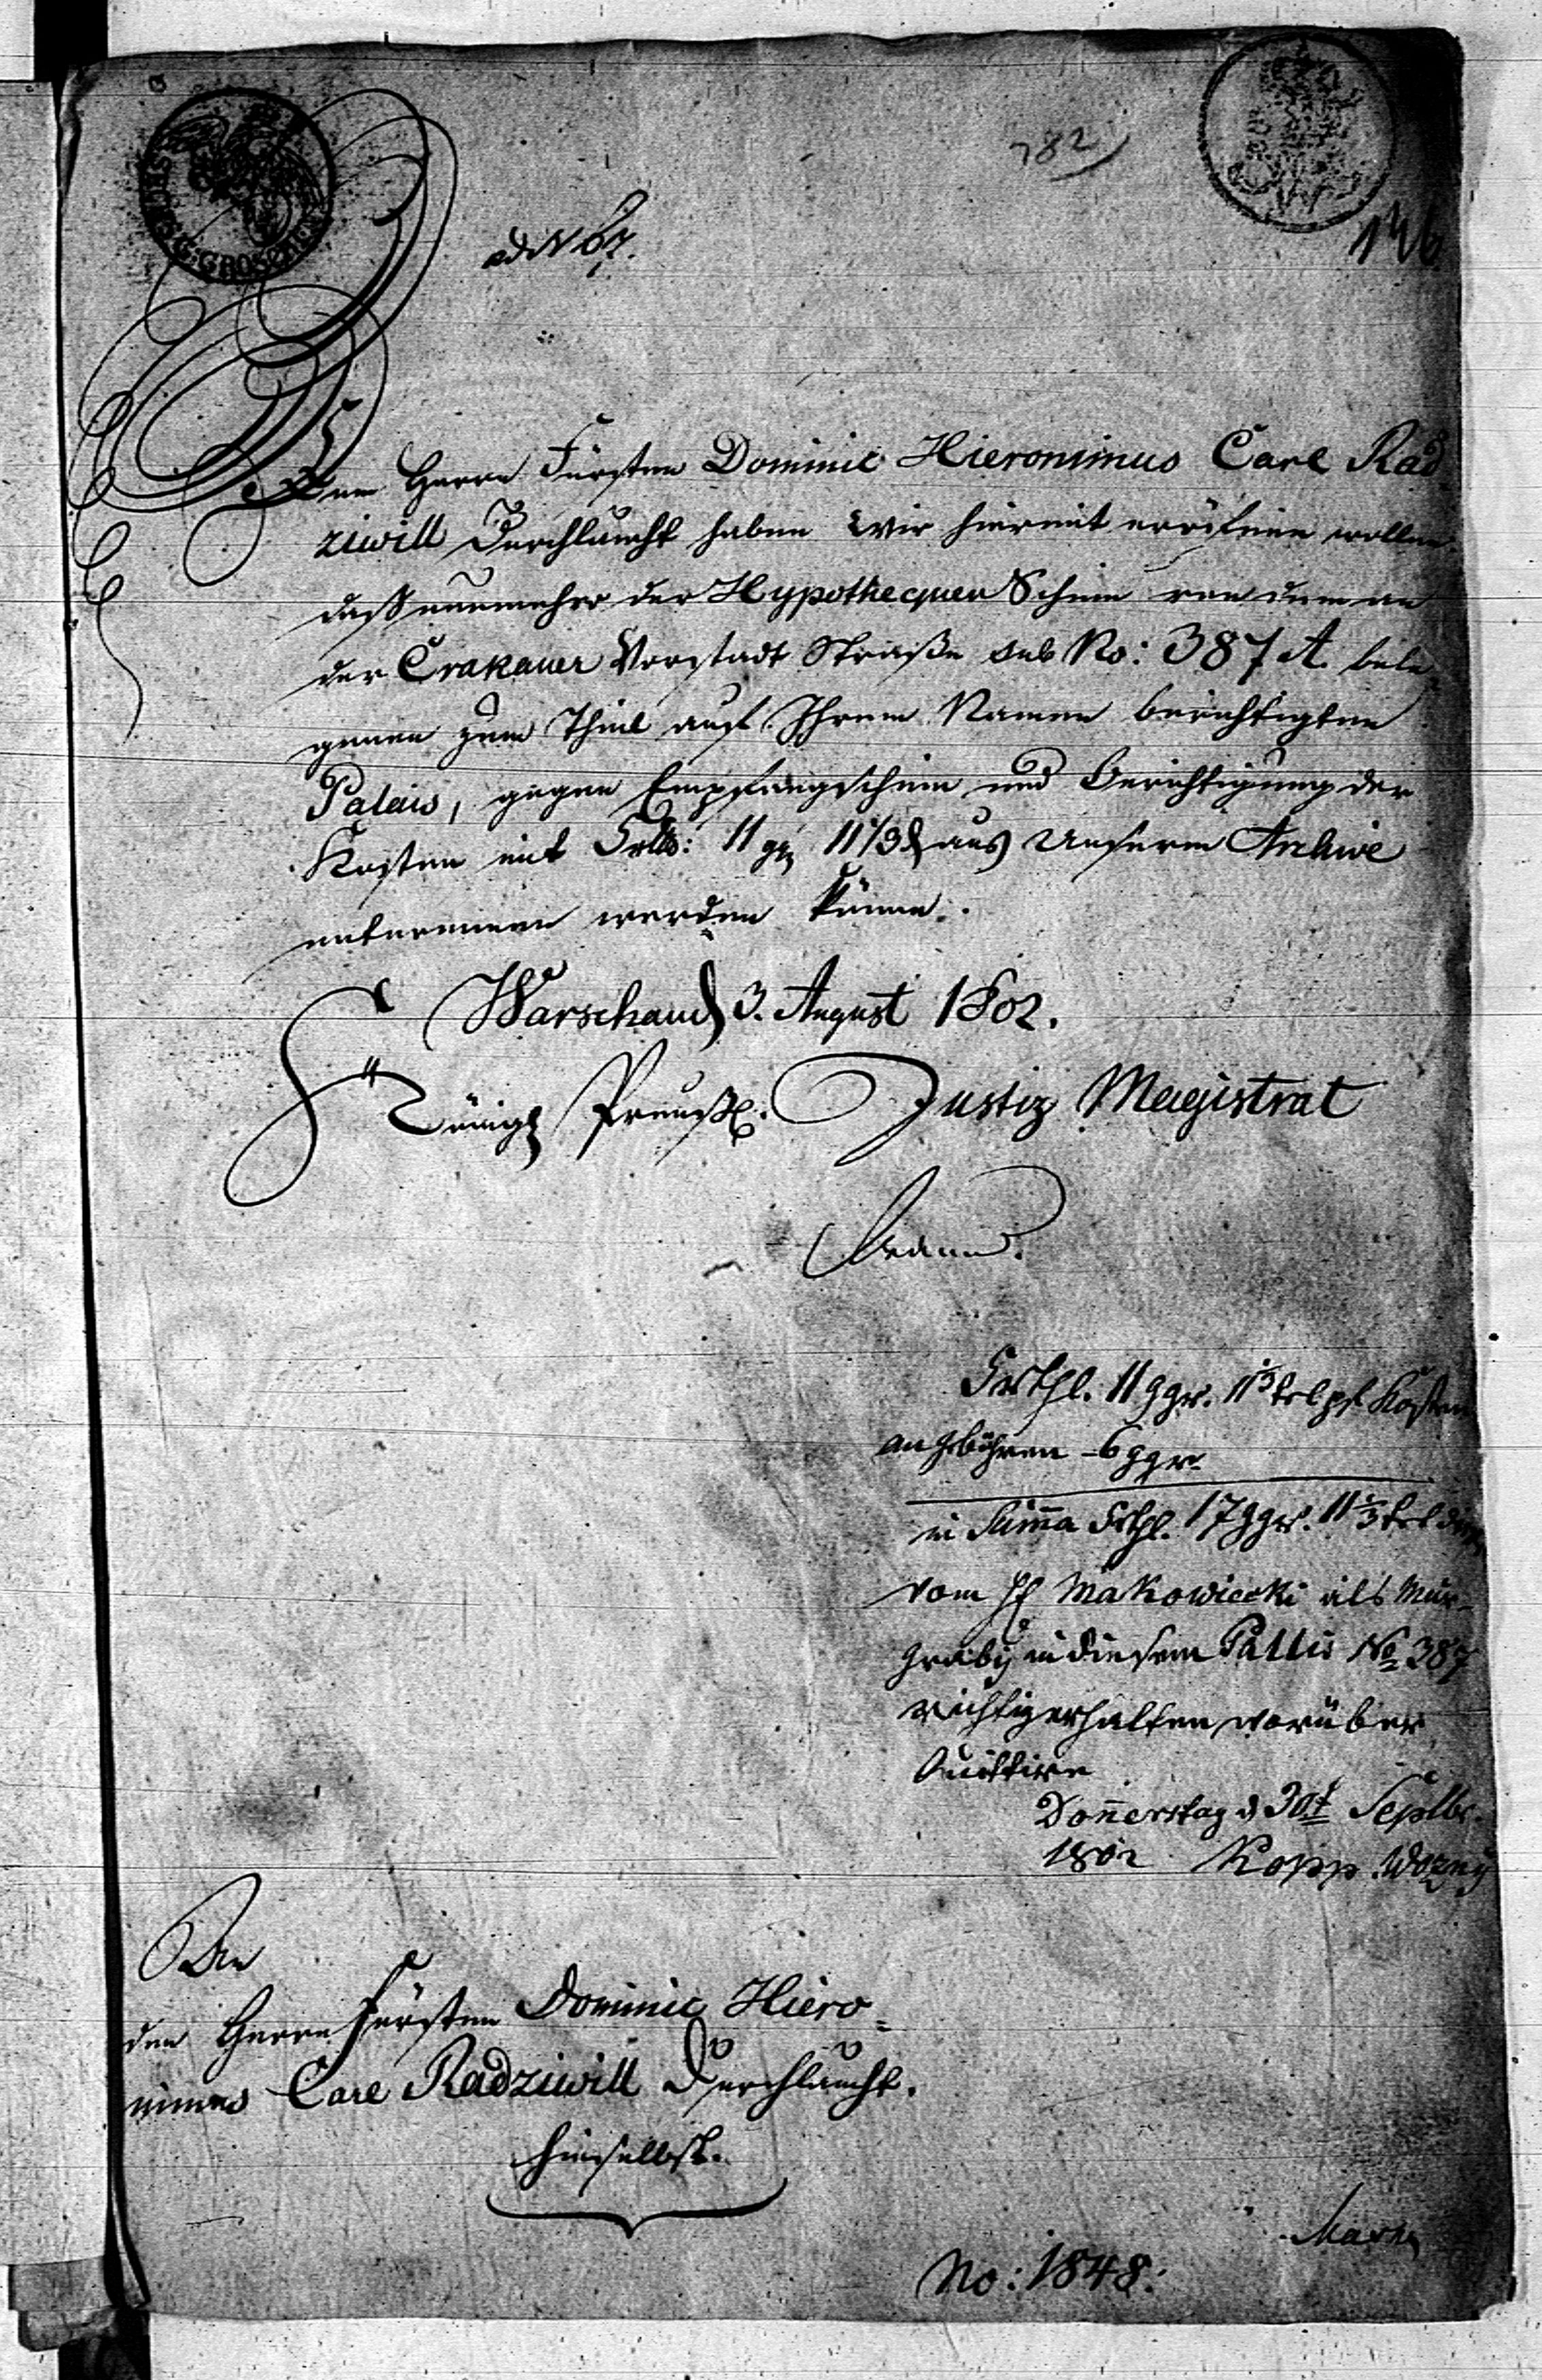 782
136
ad N 67.
SECHS G. GROSCHEN
Dem Herrn Fürsten Dominic Hieronimus Carl Rad
ziwill Durchlaucht haben Wir hiermit eröfnen wollen
daß nunmehro der Hypothequen Schein von dem an
der Crakauer Vorstadt Straße sub No: 387 A. bele
genen zum Theil auf Ihrem Namen berichtigten
Palais, gegen Empfangschein und Berichtigung der
Kosten mit 5 rtlr: 11 gg 11 1/3 d aus Unserm Archive
entnommen werden könne.
Warschau d 3. August 1802.
Königl Preußl. Justiz Magistrat
5 rthl. 11 ggr. 11 1/3 tel pf Kosten
an Gebühren - 6 ggr.
in Suma 5 rthl. 17 ggr. 11 1/3 tel
vom H Makowiecki als Mur-
graby in diesem Pallis No 387
richtig erhalten worüber
Quittire
Donnerstag d 30t Septbr.
1802 Kopp Wozny
An
den Herrn Fürsten Dominic Hiero-
nimus Carl Radziwill Durchlaucht.
hieselbst.
No: 1848.